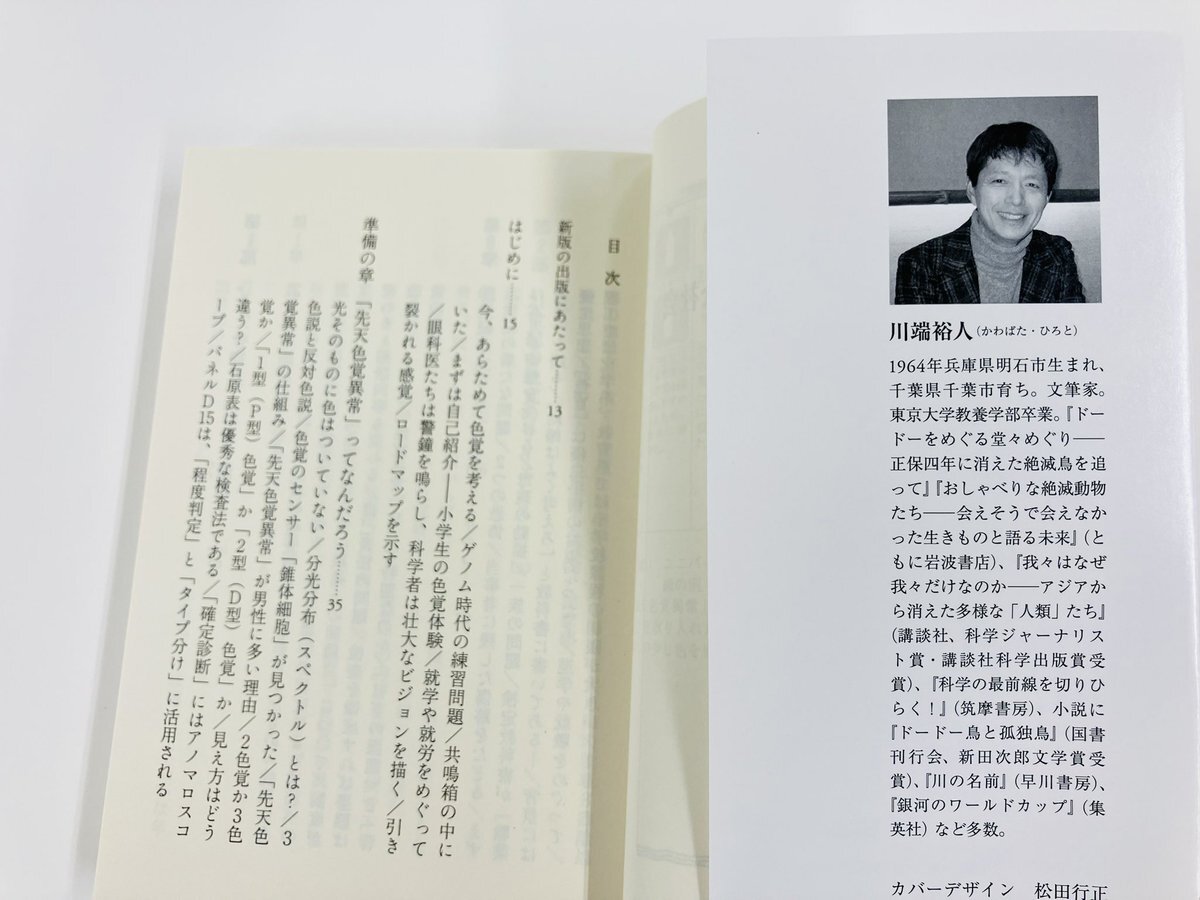 目次
新版の出版にあたって……… 13
はじめに……… 15
今、あらためて色覚を考える／ゲノム時代の練習問題／共鳴箱の中に
いた／まずは自己紹介――小学生の色覚体験／就学や就労をめぐって
／眼科医たちは警鐘を鳴らし、科学者は壮大なビジョンを描く／引き
裂かれる感覚／ロードマップを示す
準備の章 「先天色覚異常」ってなんだろう……… 35
光そのものに色はついていない／分光分布（スペクトル）とは？／3
色説と反対色説／色覚のセンサー「錐体細胞」が見つかった／「先天色
覚異常」の仕組み／「先天色覚異常」が男性に多い理由／2色覚か3色
覚か／「1型（P型）色覚」か「2型（D型）色覚」か／見え方はどう
違う？／石原表は優秀な検査法である／「確定診断」にはアノマロスコ
ープ／パネルD15は、「程度判定」と「タイプ分け」に活用される
川端裕人（かわばた・ひろと）
1964年兵庫県明石市生まれ、
千葉県千葉市育ち。文筆家。
東京大学教養学部卒業。『ドー
ドーをめぐる堂々めぐり――
正保四年に消えた絶滅鳥を追
って』『おしゃべりな絶滅動物
たち――会えそうで会えなか
った生きものと語る未来』（と
もに岩波書店）、『我々はなぜ
我々だけなのか――アジアか
ら消えた多様な「人類」たち』
（講談社、科学ジャーナリス
ト賞・講談社科学出版賞受
賞）、『科学の最前線を切りひ
らく！』（筑摩書房）、小説に
『ドードー鳥と孤独鳥』（国書
刊行会、新田次郎文学賞受
賞）、『川の名前』（早川書房）、
『銀河のワールドカップ』（集
英社）など多数。
カバーデザイン 松田行正